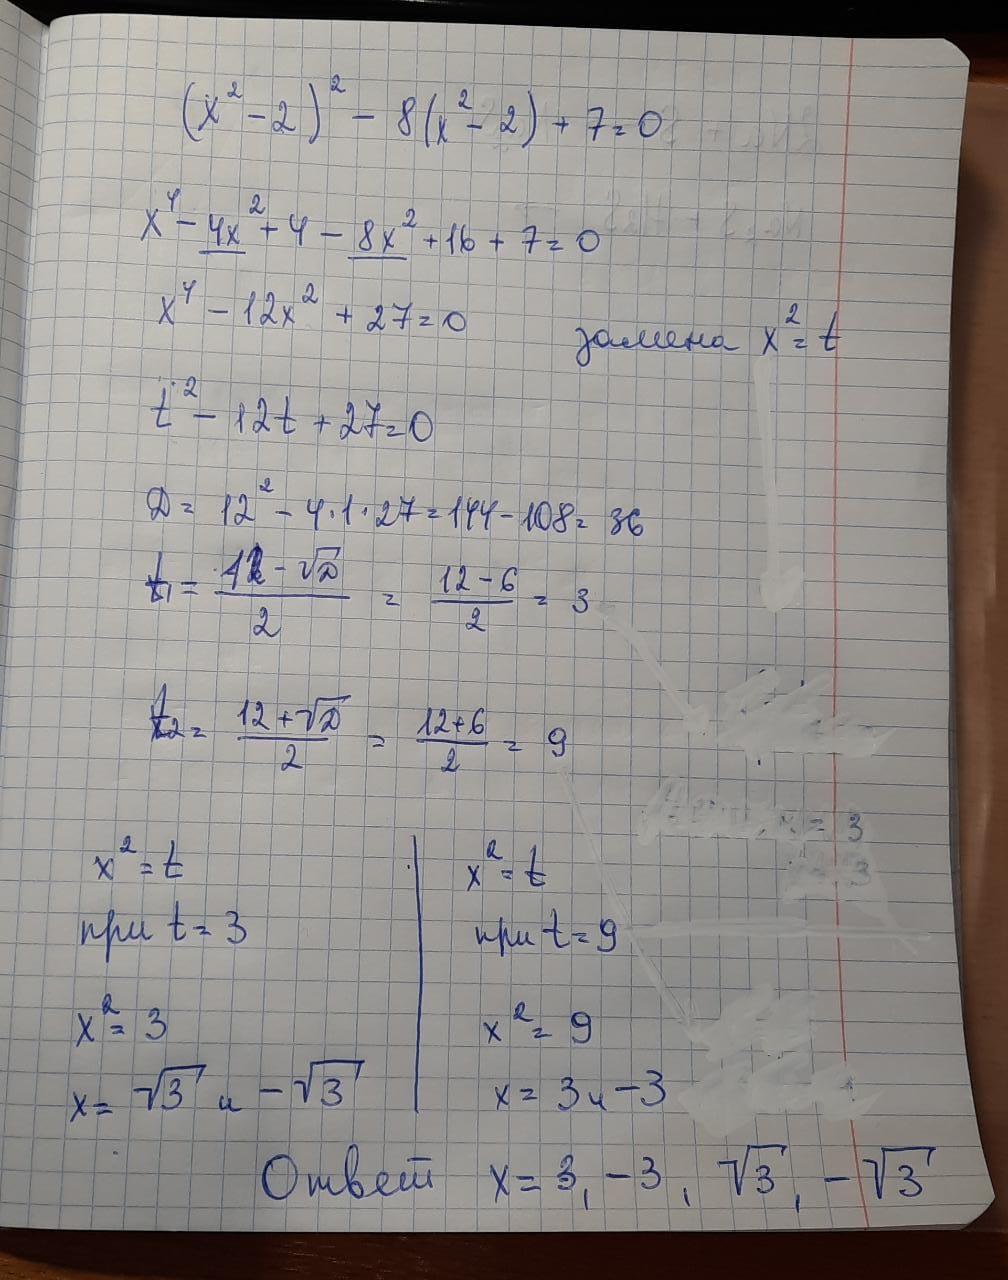 (x² - 2)² - 8(x² - 2) + 7 = 0
x⁴ - 4x² + 4 - 8x² + 16 + 7 = 0
x⁴ - 12x² + 27 = 0
замена x² = t
t² - 12t + 27 = 0
D = 12² - 4·1·27 = 144 - 108 = 36
t₁ = (12 - √D)/2 = (12 - 6)/2 = 3
t₂ = (12 + √D)/2 = (12 + 6)/2 = 9
x² = t
при t = 3
x² = 3
x = √3 и -√3
x² = t
при t = 9
x² = 9
x = 3 и -3
Ответ x = 3, -3, √3, -√3